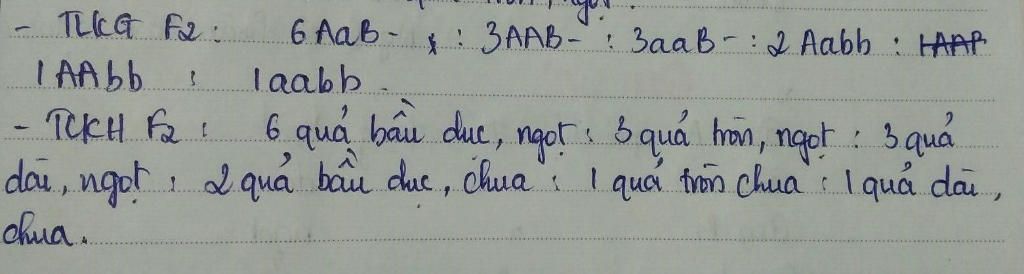 - TLKG F2 : 6 AaB- : 3AAB- : 3aaB- : 2 Aabb :
1 AAbb : 1aabb.
- TLKH F2 : 6 quả bầu dục, ngọt : 3 quả tròn, ngọt : 3 quả
dài, ngọt : 2 quả bầu dục, chua : 1 quả tròn chua : 1 quả dài,
chua.